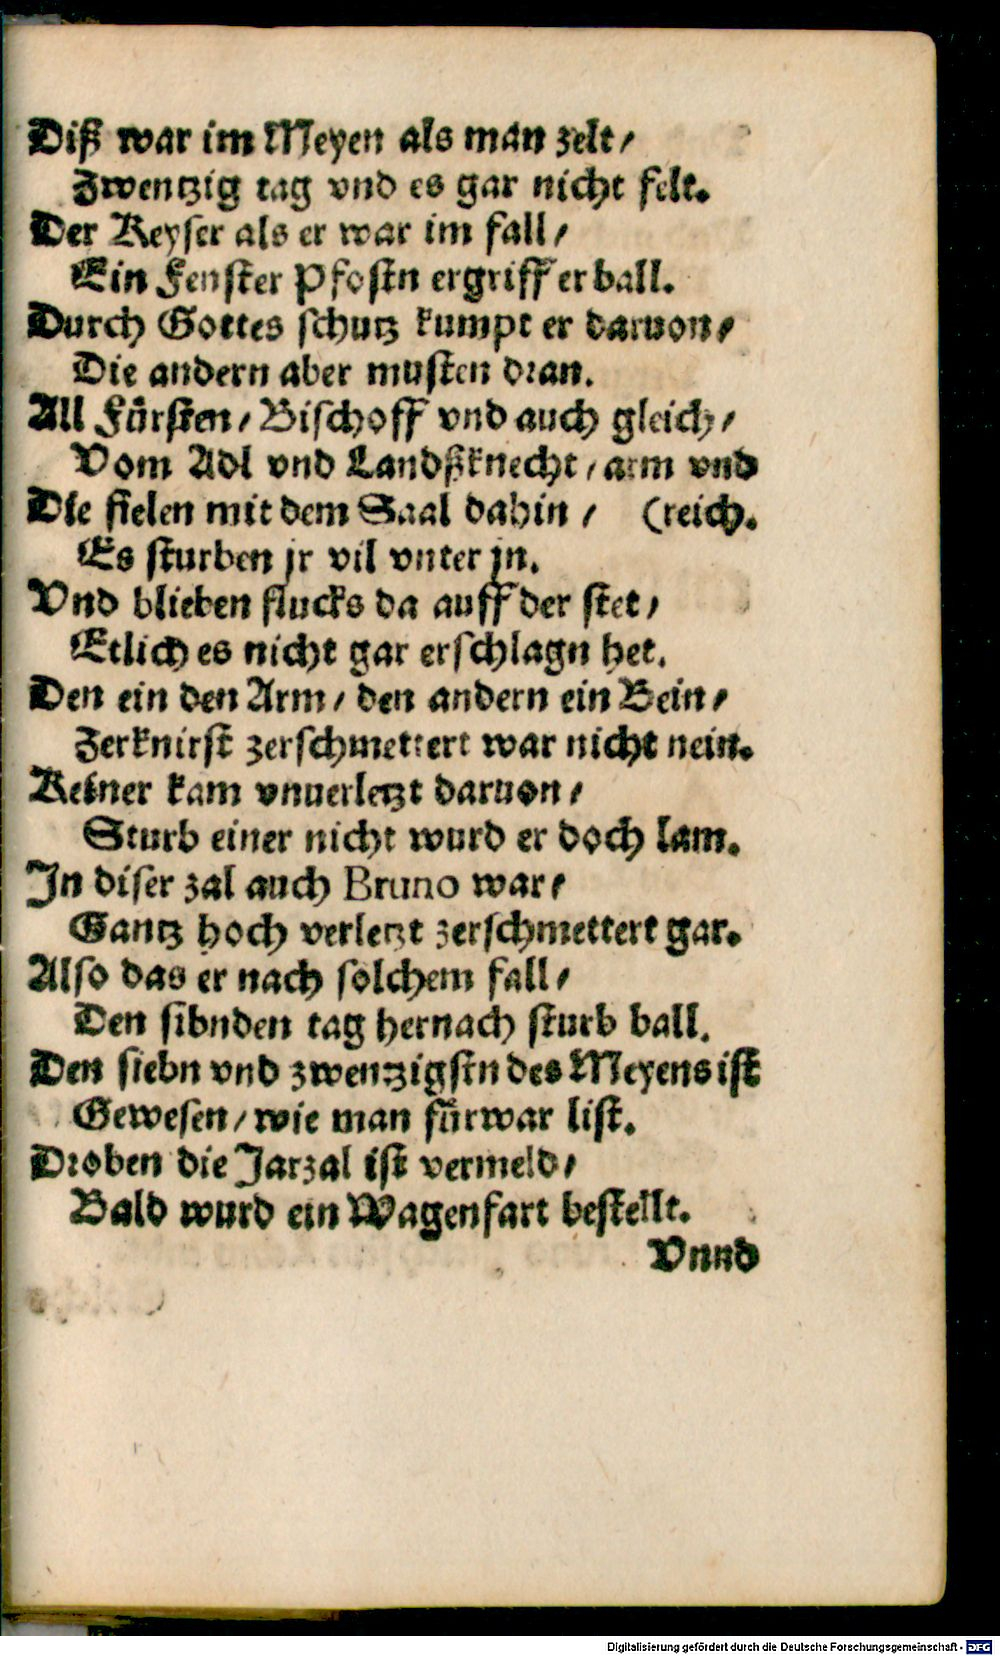 Diß war im Meyen als man zelt /
Zwentzig tag vnd es gar nicht felt.
Der Keyser als er war im fall /
Ein Fenster Pfostn ergriff er ball.
Durch Gottes schutz kumpt er daruon /
Die andern aber musten dran.
All Fürsten / Bischoff vnd auch gleich /
Vom Adl vnd Landßknecht / arm vnd
Die fielen mit dem Saal dahin / (reich.
Es sturben jr vil vnter jn.
Vnd blieben flucks da auff der stet /
Etlich es nicht gar erschlagn het.
Den ein den Arm / den andern ein Bein /
Zerknirst zerschmettert war nicht nein.
Keiner kam vnuerletzt daruon /
Sturb einer nicht wurd er doch lam.
In diser zal auch Bruno war /
Gantz hoch verletzt zerschmettert gar.
Also das er nach solchem fall /
Den sibnden tag hernach sturb ball.
Den siebn vnd zwentzigstn des Meyens ist
Gewesen / wie man fürwar list.
Droben die Jarzal ist vermeld /
Bald wurd ein Wagenfart bestellt.
Vnnd
Digitalisierung gefördert durch die Deutsche Forschungsgemeinschaft - DFG